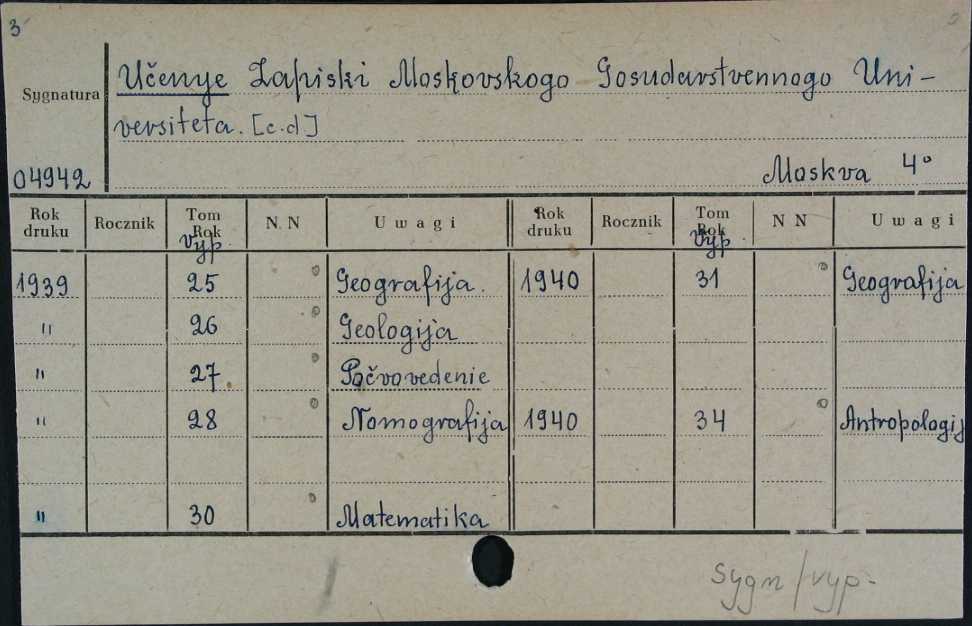 3
Sygnatura
Učenye Zapiski Moskovskogo Gosudarstvennogo Uni-
versiteta. [c.d]
04942
Moskva 4°
Rok druku Rocznik Tom Rok vyp N.N Uwagi Rok druku Rocznik Tom Rok vyp NN Uwagi
1939 25 Geografija. 1940 31 Geografija
" 26 Geologija
" 27 Počvovedenie
" 28 Nomografija 1940 34 Antropologij
" 30 Matematika
sygn/vyp-